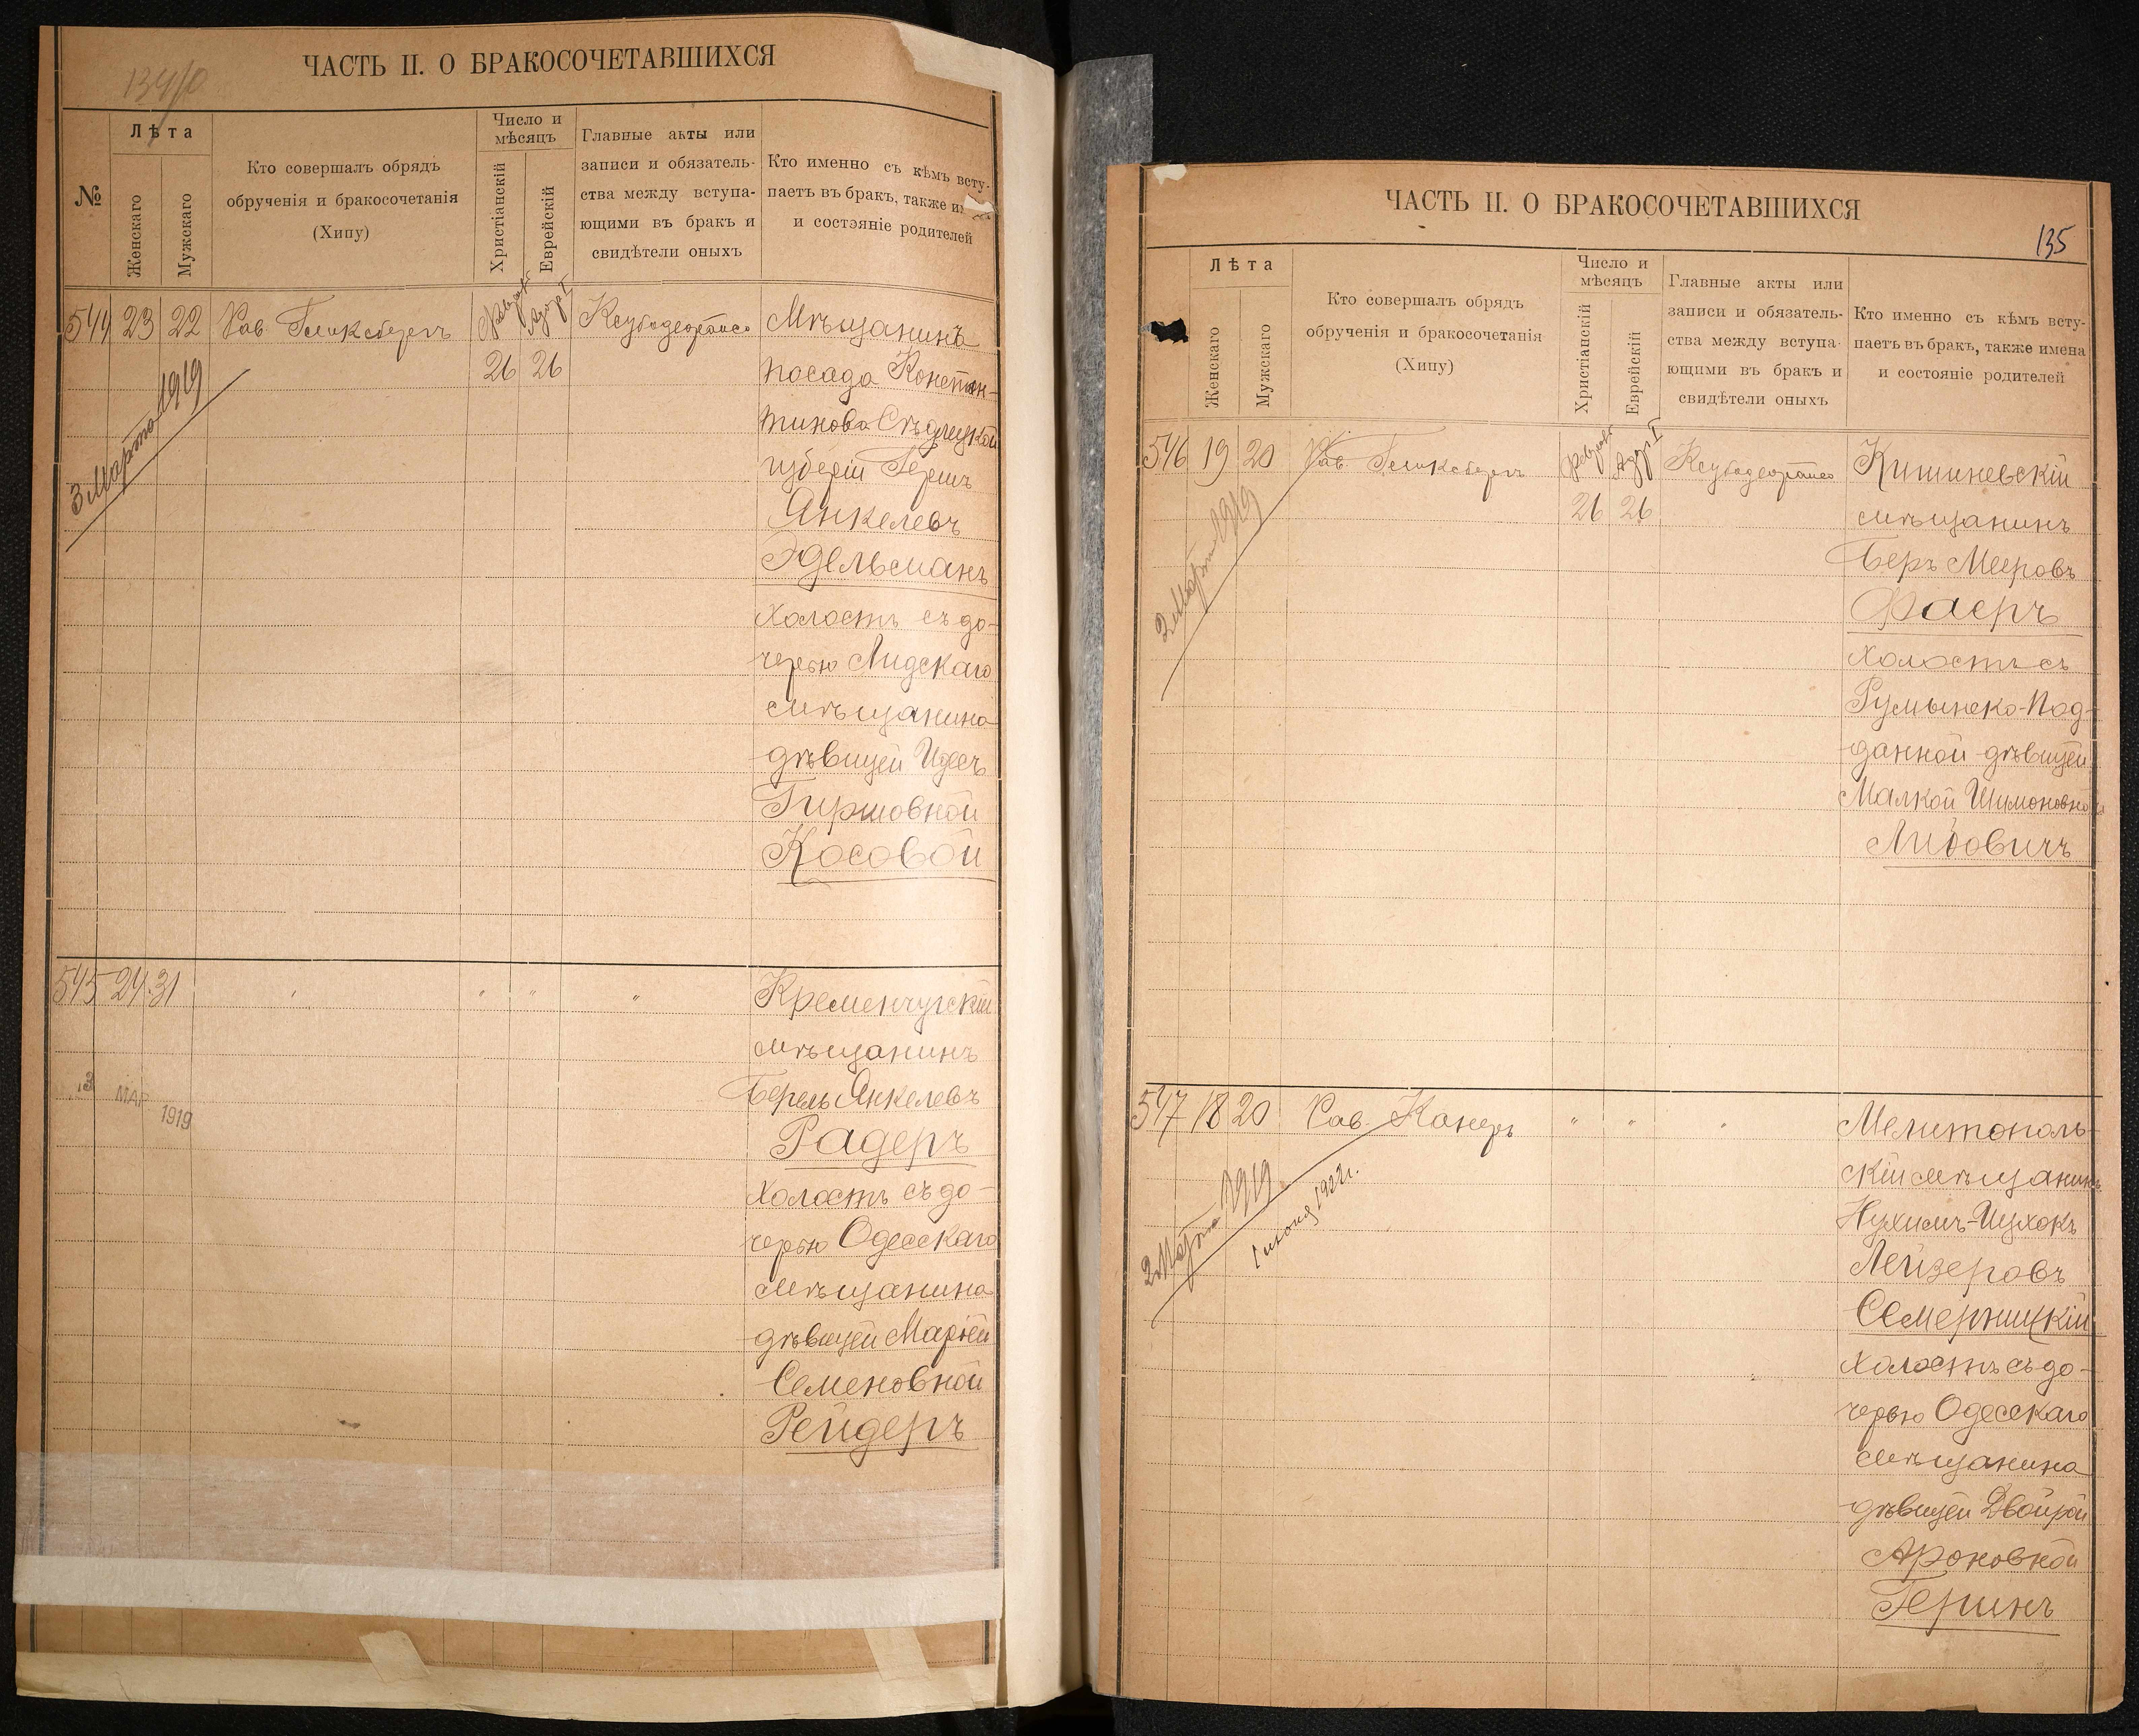 134/0
ЧАСТЬ II. О БРАКОСОЧЕТАВШИХСЯ
№
Лѣта
Женскаго
Мужскаго
Кто совершалъ обрядъ
обрученія и бракосочетанія
(Хипу)
Число и
мѣсяцъ
Христіанскій
Еврейскій
Главные акты или
записи и обязатель-
ства между вступа-
ющими въ бракъ и
свидѣтели оныхъ
Кто именно съ кѣмъ всту-
паетъ въ бракъ, также
и состояніе родителей
544 23 22 Рав. Гликсбергъ
Февраль 26
Адаръ I 26
Мѣщанинъ
посада Констан-
тинова Сѣдлецкой
губерніи Гершъ
Янкелевъ
Эдельсманъ
холостъ съ до-
черью Лидскаго
мѣщанина
дѣвицей Идесъ
Гиршовной
Косовой
3 Марта 1919
545 24 31 " " " "
Кременчугскій
мѣщанинъ
Берель Янкелевъ
Радеръ
холостъ съ до-
черью Одесскаго
мѣщанина
дѣвицей Маріей
Семеновной
Рейдеръ
3 МАР 1919
ЧАСТЬ II. О БРАКОСОЧЕТАВШИХСЯ
135
Лѣта
Женскаго
Мужскаго
Кто совершалъ обрядъ
обрученія и бракосочетанія
(Хипу)
Число и
мѣсяцъ
Христіанскій
Еврейскій
Главные акты или
записи и обязатель-
ства между вступа-
ющими въ бракъ и
свидѣтели оныхъ
Кто именно съ кѣмъ всту-
паетъ въ бракъ, также имена
и состояніе родителей
546 19 20 Рав. Гликсбергъ
Февраль 26
Адаръ I 26
Кишиневскій
мѣщанинъ
Беръ Мееровъ
Фаеръ
холостъ съ
Румынско-Под-
данной дѣвицей
Малкой Шимоновной
Либовичъ
2 Марта 1919
547 18 20 Рав. Канеръ " " "
Мелитополь-
скій мѣщанинъ
Нухимъ-Ицхокъ
Лейзеровъ
Семерницкій
холостъ съ до-
черью Одесскаго
мѣщанина
дѣвицей Двойрой
Ароновной
Гершнъ
2 Марта 1919
1922 г.